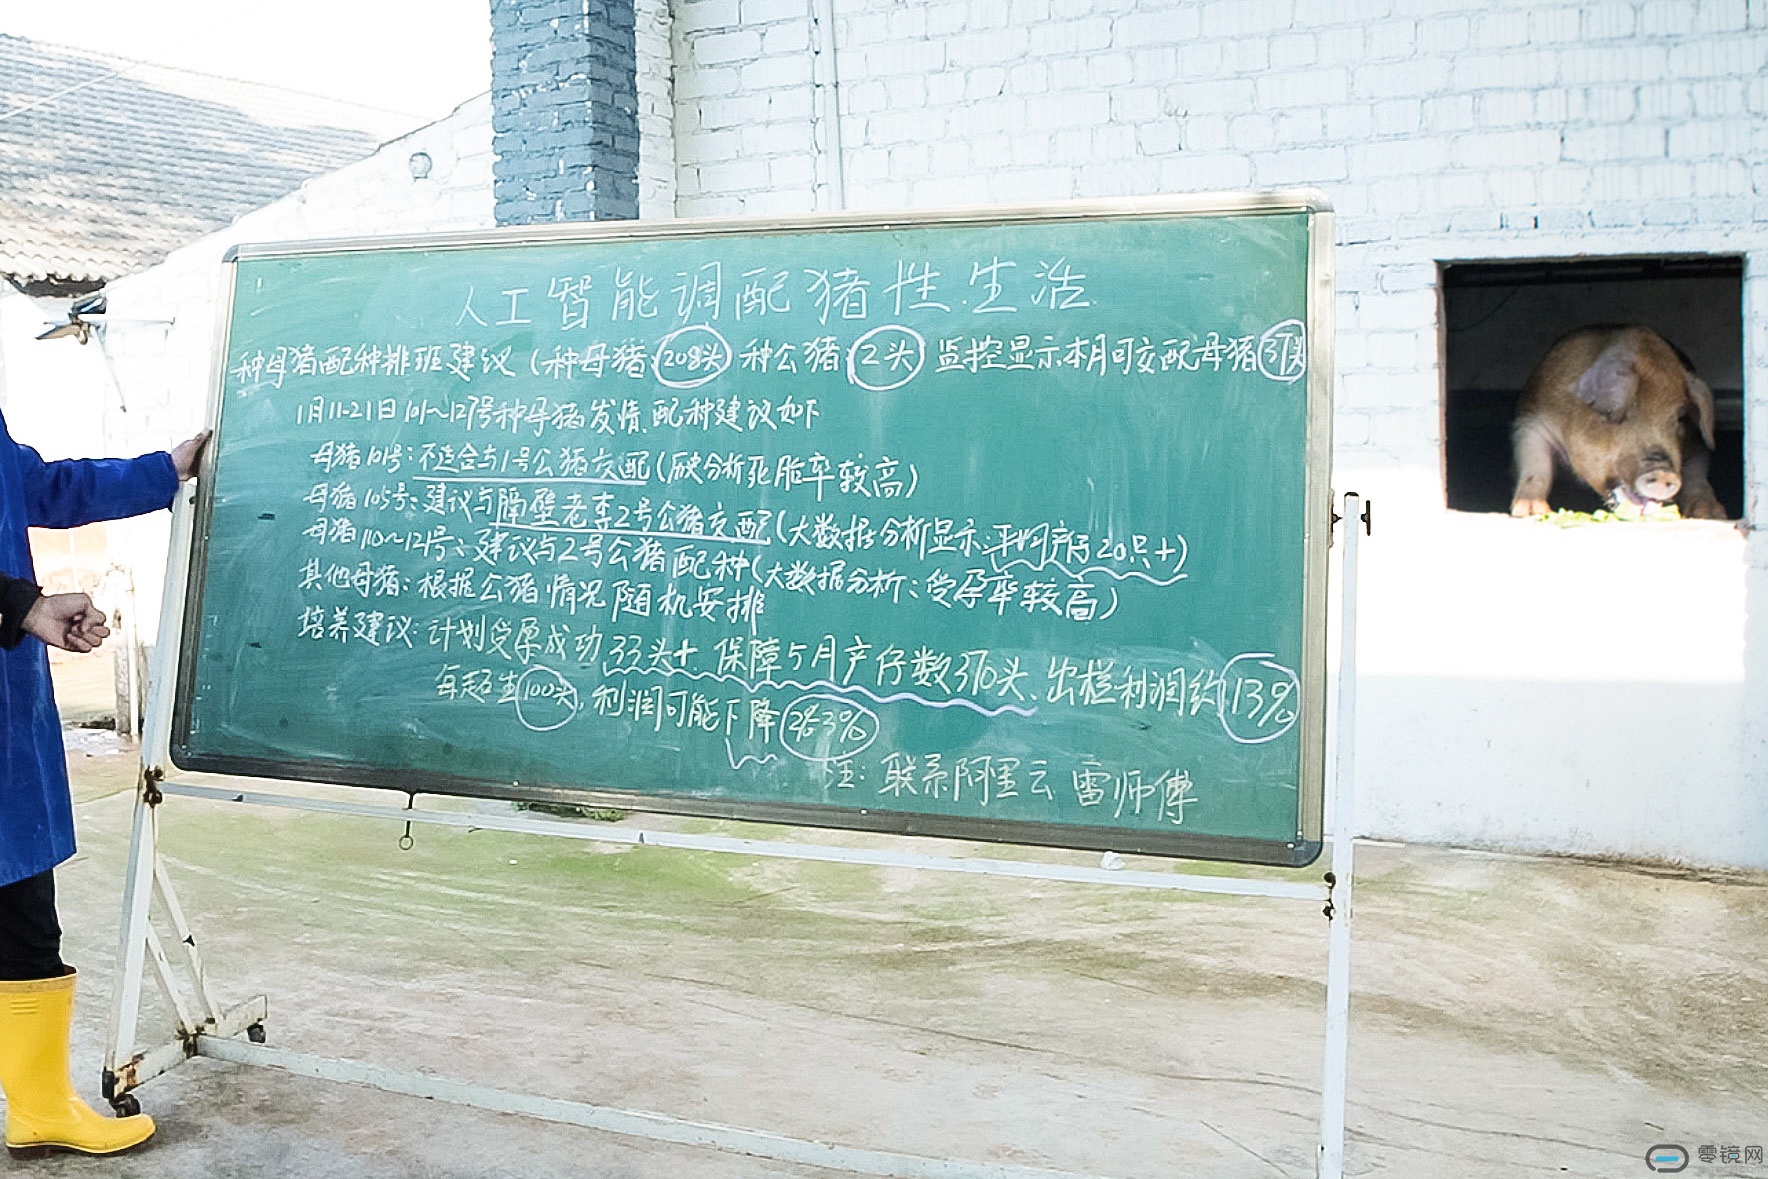 人工智能调配猪性生活
种母猪配种排班建议（种母猪：208头 种公猪：2头 监控显示本月可交配母猪37头
1月11-21日101～127号种母猪发情，配种建议如下
母猪101号：不适合与1号公猪交配（历史分析死胎率较高）
母猪105号：建议与隔壁老李2号公猪交配（大数据分析显示：平均产仔20只+）
母猪110～121号：建议与2号公猪配种（大数据分析：受孕率较高）
其他母猪：根据公猪情况随机安排
培养建议：计划受孕成功33头+，保障5月产仔数370头，出栏利润约13%
每超生100头，利润可能下降28.3%
注：联系阿里云雷师傅
零镜网